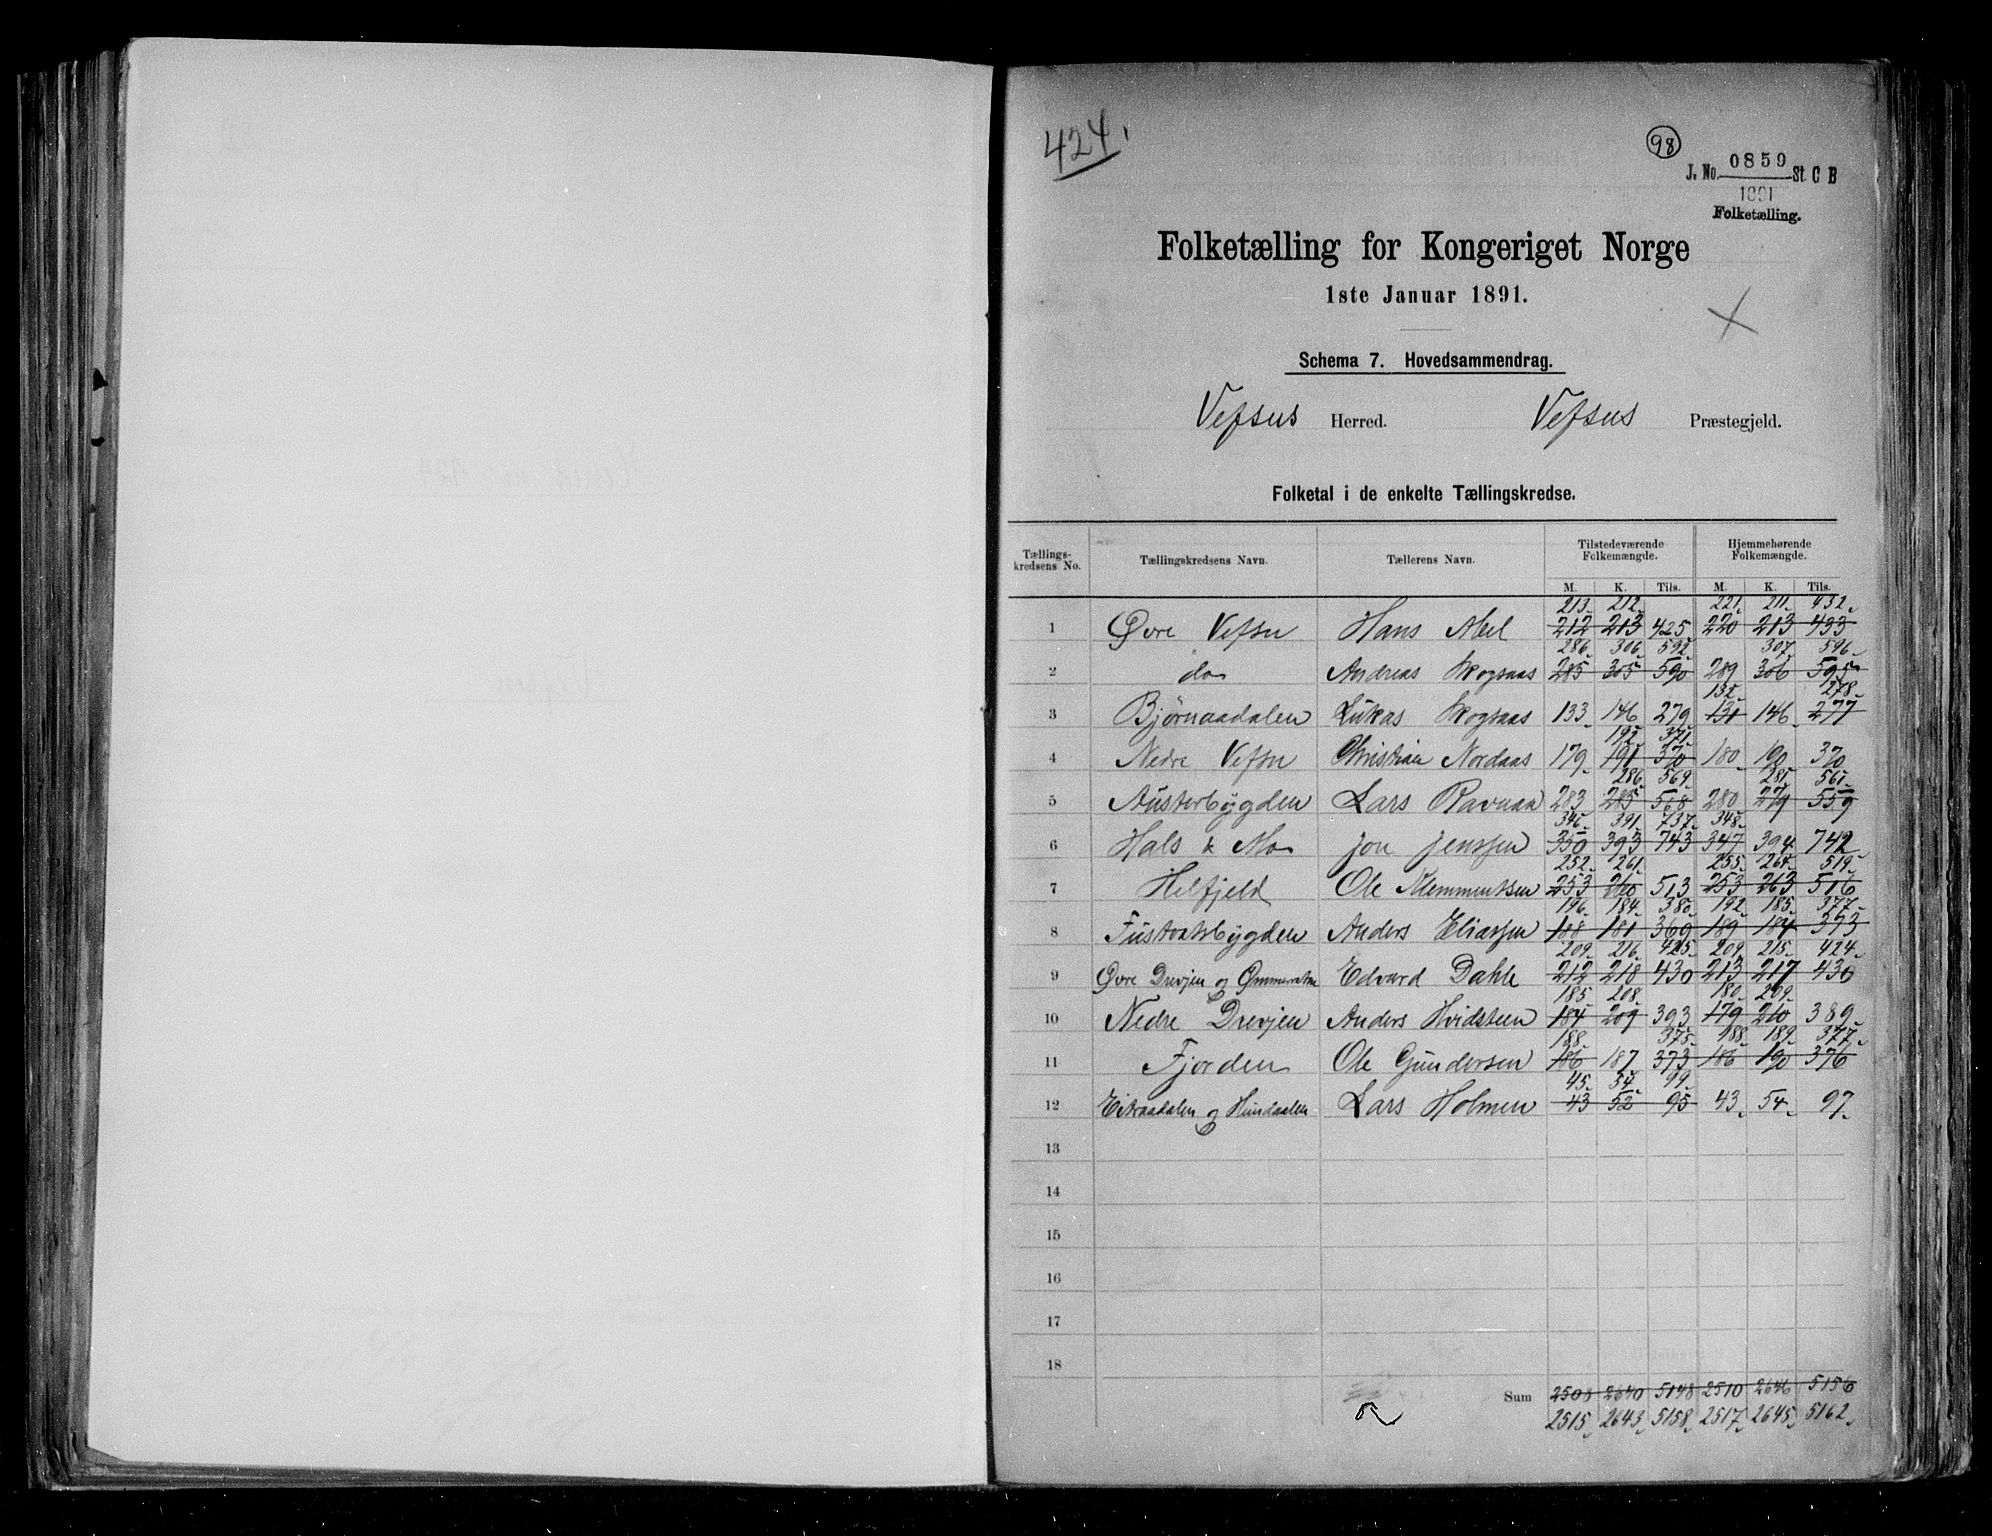 424.
98
J. No. 0859 St. C B
1891
Folketælling.
Folketælling for Kongeriget Norge
1ste Januar 1891.
Schema 7. Hovedsammendrag.
Vefsns Herred. Vefsns Præstegjeld.
Folketal i de enkelte Tællingskredse.
Tællings-kredsens No. Tællingskredsens Navn. Tællerens Navn. Tilstedeværende Folkemængde. Hjemmehørende Folkemængde.
M. K. Tils. M. K. Tils.
213 212 221 211 432
1 Øvre Vefsn Hans Abel 212 213 425 220 213 433
286 306 592 307 596
2 do Andreas Skogsaas 285 305 590 289 306 595
132 278
3 Bjørnaadalen Lukas Skogsaas 133 146 279 131 146 277
192 371
4 Nedre Vefsn Christian Nordaas 179 191 370 180 190 370
286 569 281 561
5 Austerbygden Lars Ravnaa 283 285 568 280 279 559
346 391 737 348
6 Hals & Mo Jon Jenssen 350 393 743 347 394 742
252 261 255 264 519
7 Helfjeld Ole Klemmentsen 253 260 513 253 263 516
196 184 380 192 185 377
8 Fustvatsbygden Anders Eliassen 188 181 369 189 184 373
209 216 425 209 215 424
9 Øvre Drevjen og Ømmervatn Edvard Dahle 212 218 430 213 217 430
185 208 180 209
10 Nedre Drevjen Anders Hvidsteen 184 209 393 179 210 389
188 375 188 189 377
11 Fjorden Ole Gundersen 186 187 373 186 190 376
45 54 99
12 Eiteraadalen og Hundaalen Lars Holmen 43 52 95 43 54 97
13
14
15
16
17
18
Sum 2508 2640 5148 2510 2646 5156
2515 2643 5158 2517 2645 5162